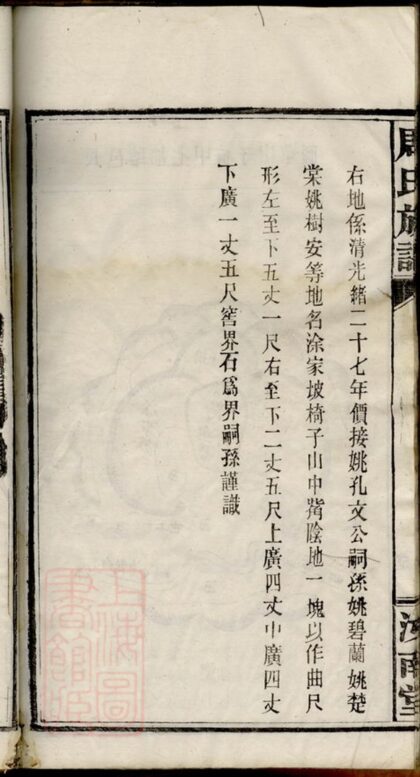 周氏族譜
右地係清光緒二十七年價接姚孔文公嗣孫姚碧蘭姚楚
棠姚樹安等地名涂家坡椅子山中嘴陰地一塊以作曲尺
形左至下五丈一尺右至下二丈五尺上廣四丈中廣四丈
下廣一丈五尺窖界石爲界嗣孫謹識
上海圖書館藏